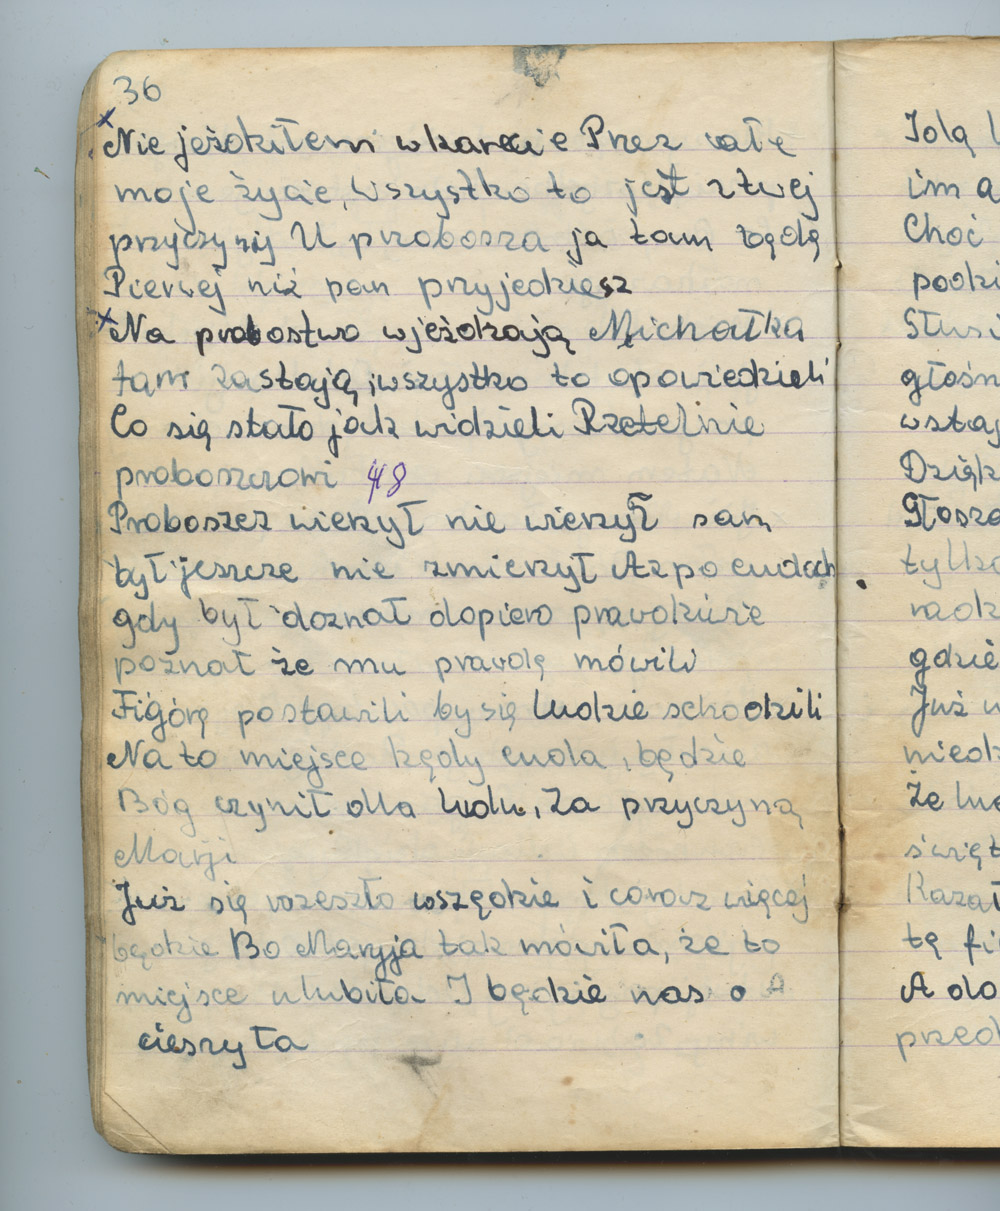 36
Nie jeździłem w karecie Przez całe
moje życie, Wszystko to jest z twej
przyczynij U probosza ja tam będę
Pierwej niż pan przyjedziesz
Na probostwo wjeżdzają Michałka
tam zastają, wszystko to opowiedzieli
Co się stało jak widzieli Rzetelnie
proboszczowi 48
Proboszez wierzył nie wierzył sam
był jeszcze nie zmierzył Az po cudach
gdy był doznał dopiero prawdziwie
poznał że mu prawdę mówili
Figórę postawili by się ludzie schodzili
Na to miejsce kędy cuda, będzie
Bóg czynił dla ludu, Za przyczyną
Marji
Już się rozeszło wszędzie i coraz więcej
będzie Bo Maryja tak mówiła, że to
miejsce ulubiła I będzie nas o
cieszyła
Jolą
im
Choć
podzi
Słusi
głośn
wstaj
Dzięk
Głosz
tylko
radz
gdzie
Już
niedz
Że lu
święt
Kazał
tę fi
A do
przed